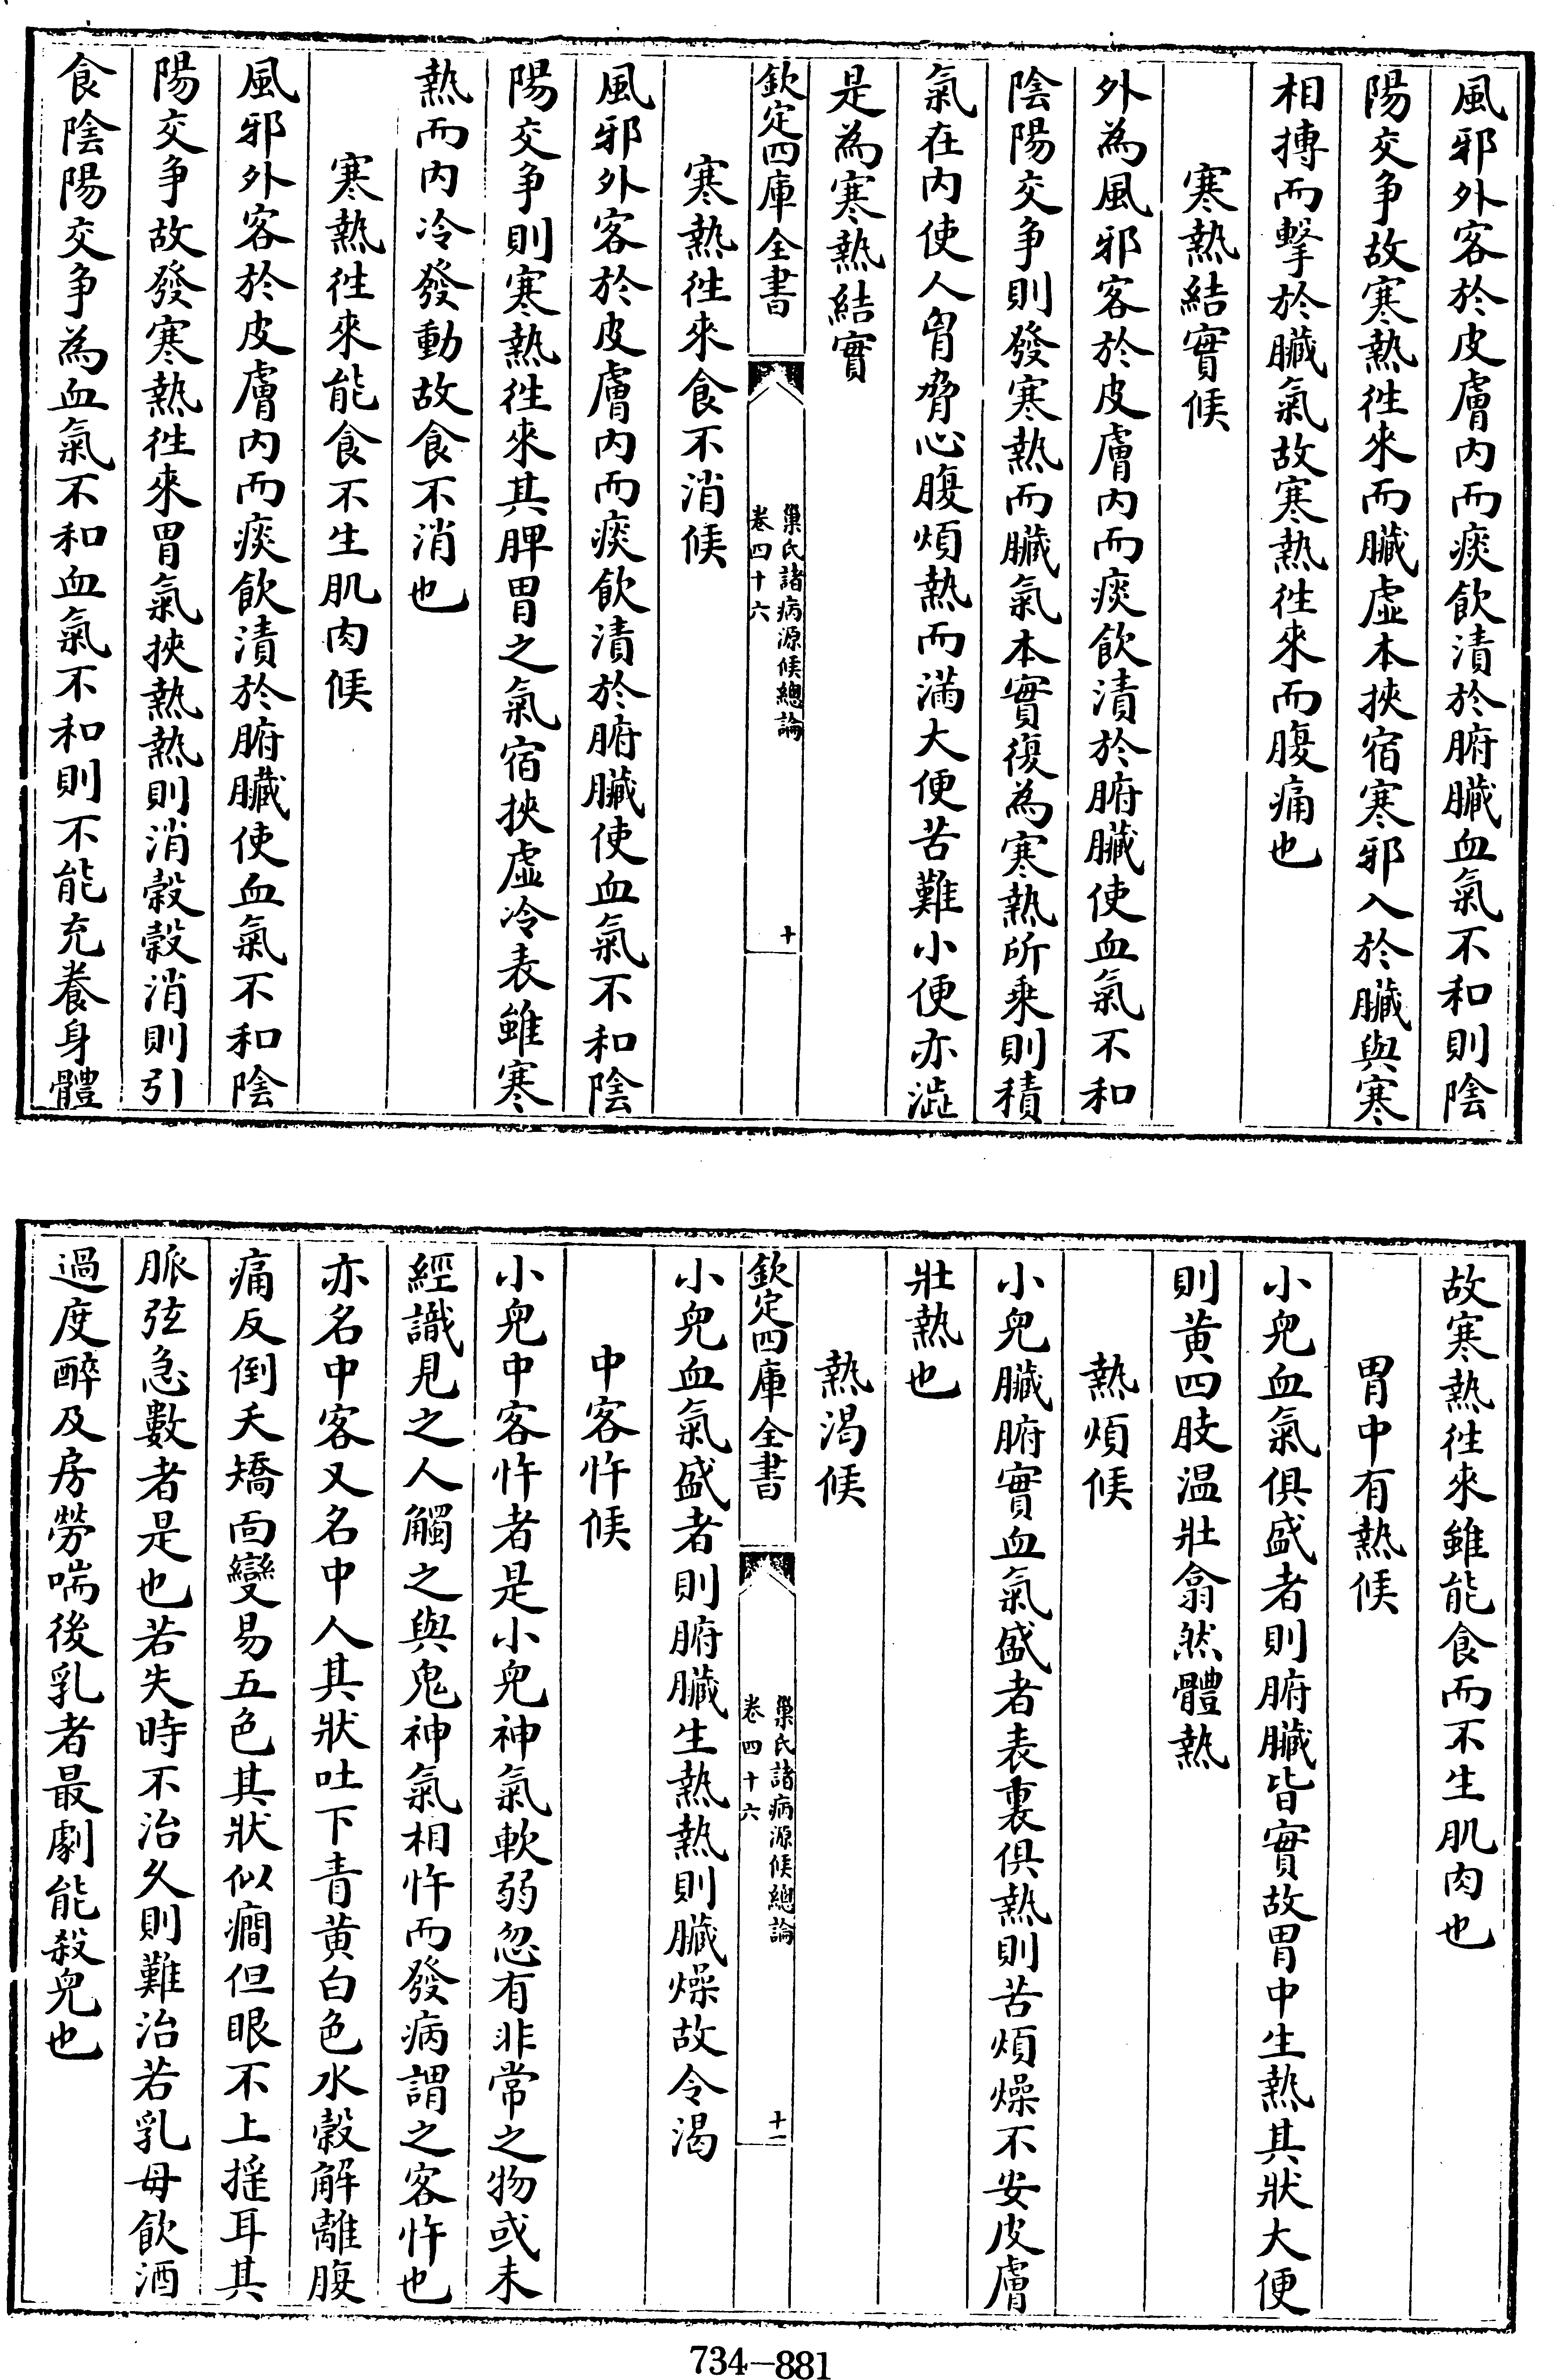 風邪外客於皮膚内而痰飲漬於腑臟血氣不和則陰
陽交争故寒熱徃來而臟虚本挾宿寒邪入於臟與寒
相搏而擊於臟氣故寒熱徃來而腹痛也
寒熱結實候
外為風邪客於皮膚内而痰飲漬於腑臟使血氣不和
陰陽交争則發寒熱而臟氣本實復為寒熱所乗則積
氣在内使人胷脅心腹煩熱而滿大便苦難小便亦澁
是為寒熱結實
欽定四庫全書
巢氏諸病源候總論
卷四十六
十
寒熱徃來食不消候
風邪外客於皮膚内而痰飲漬於腑臟使血氣不和陰
陽交争則寒熱徃來其脾胃之氣宿挾虚冷表雖寒
熱而内冷發動故食不消也
寒熱徃來能食不生肌肉候
風邪外客於皮膚内而痰飲漬於腑臟使血氣不和陰
陽交争故發寒熱徃來胃氣挾熱熱則消穀穀消則引
食陰陽交争為血氣不和血氣不和則不能充養身體
故寒熱徃來雖能食而不生肌肉也
胃中有熱候
小兒血氣俱盛者則腑臟皆實故胃中生熱其狀大便
則黄四肢温壯翕然體熱
熱煩候
小兒臟腑實血氣盛者表裏俱熱則苦煩燥不安皮膚
壯熱也
熱渴候
欽定四庫全書
巢氏諸病源候總論
卷四十六
十一
小兒血氣盛者則腑臟生熱熱則臟燥故令渴
中客忤候
小兒中客忤者是小兒神氣軟弱忽有非常之物或未
經識見之人觸之與鬼神氣相忤而發病謂之客忤也
亦名中客又名中人其狀吐下青黄白色水穀解離腹
痛反倒夭矯面變易五色其狀似癎但眼不上揺耳其
脈弦急數者是也若失時不治久則難治若乳母飲酒
過度醉及房勞喘後乳者最劇能殺兒也
734-881